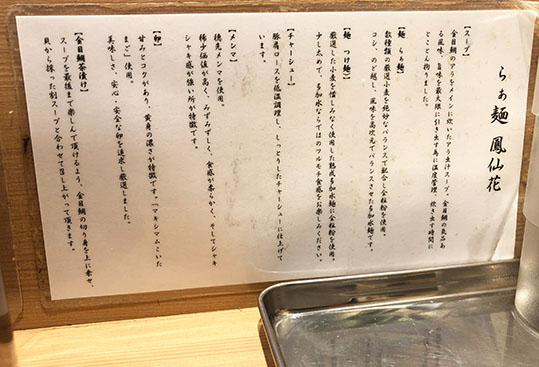 らぁ麺 鳳仙花
【スープ】
金目鯛のアラをメインに炊いたアラ出汁スープ、金目鯛の気品あ
る風味、旨味を最大限に引き出す為に温度管理、炊き出す時間に
とことん拘りました。
【麺 らぁ麺】
数種類の厳選小麦を絶妙なバランスで配合し全粒粉を使用。
コシ、のど越し、風味を高次元でバランスさせた多加水麺です。
【麺 つけ麺】
厳選した小麦を惜しみなく使用した熟成多加水麺に全粒粉を使用。
少し太めで、多加水ならではのツルモチ食感をお楽しみください。
【チャーシュー】
豚肩ロースを低温調理し、しっとりしたチャーシューに仕上げて
います。
【メンマ】
穂先メンマを使用。
稀少価値が高く、みずみずしく、食感が柔らかく、そしてシャキ
シャキ感が強い所が特徴です。
【卵】
甘みとコクがあり、黄身の濃さが特徴です。「マキシマムこいた
まご」使用。
美味しさ、安心、安全な卵を追求し厳選しました。
【金目鯛茶漬け】
スープを最後まで楽しんで頂けるよう、金目鯛の切り身を上に乗せ、
貝から採った割スープと合わせて召し上がって頂きます。